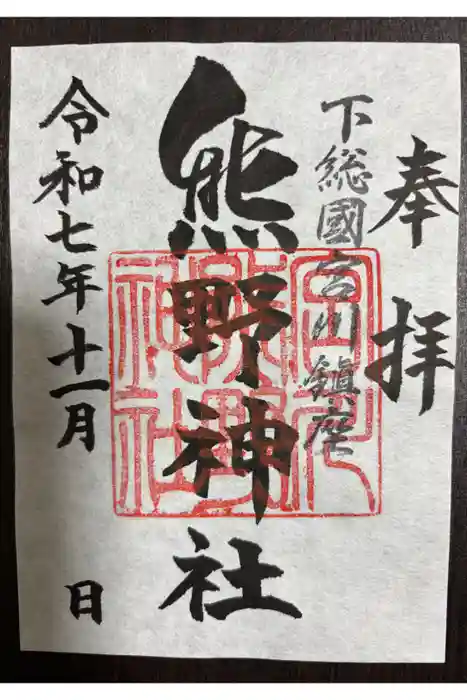 奉拝
下総國宮川鎮座
熊野神社
令和七年十一月 日